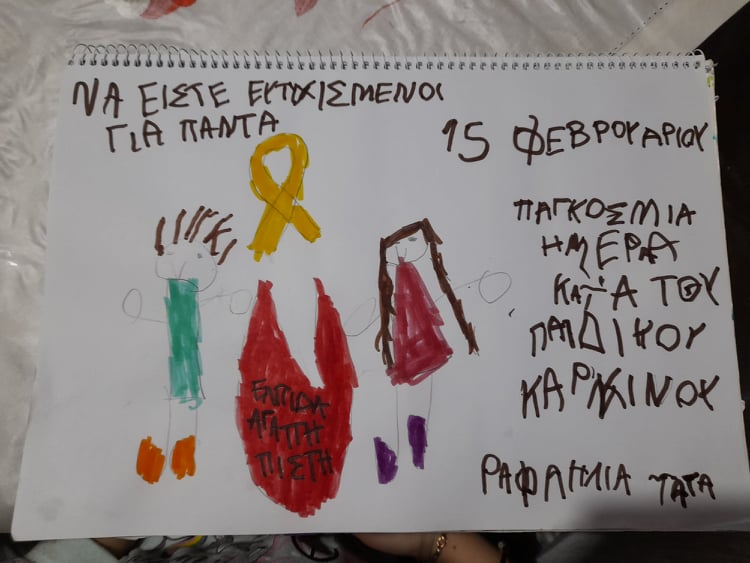 ΝΑ ΕΙΣΤΕ ΕΥΤΥΧΙΣΜΕΝΟΙ
ΓΙΑ ΠΑΝΤΑ
15 ΦΕΒΡΟΥΑΡΙΟΥ
ΠΑΓΚΟΣΜΙΑ
ΗΜΕΡΑ
ΚΑΤΑ ΤΟΥ
ΠΑΙΔΙΚΟΥ
ΚΑΡΚΙΝΟΥ
ΕΛΠΙΔΑ
ΑΓΑΠΗ
ΠΙΣΤΗ
ΡΑΦΑΗΛΙΑ ΤΑΤΑ